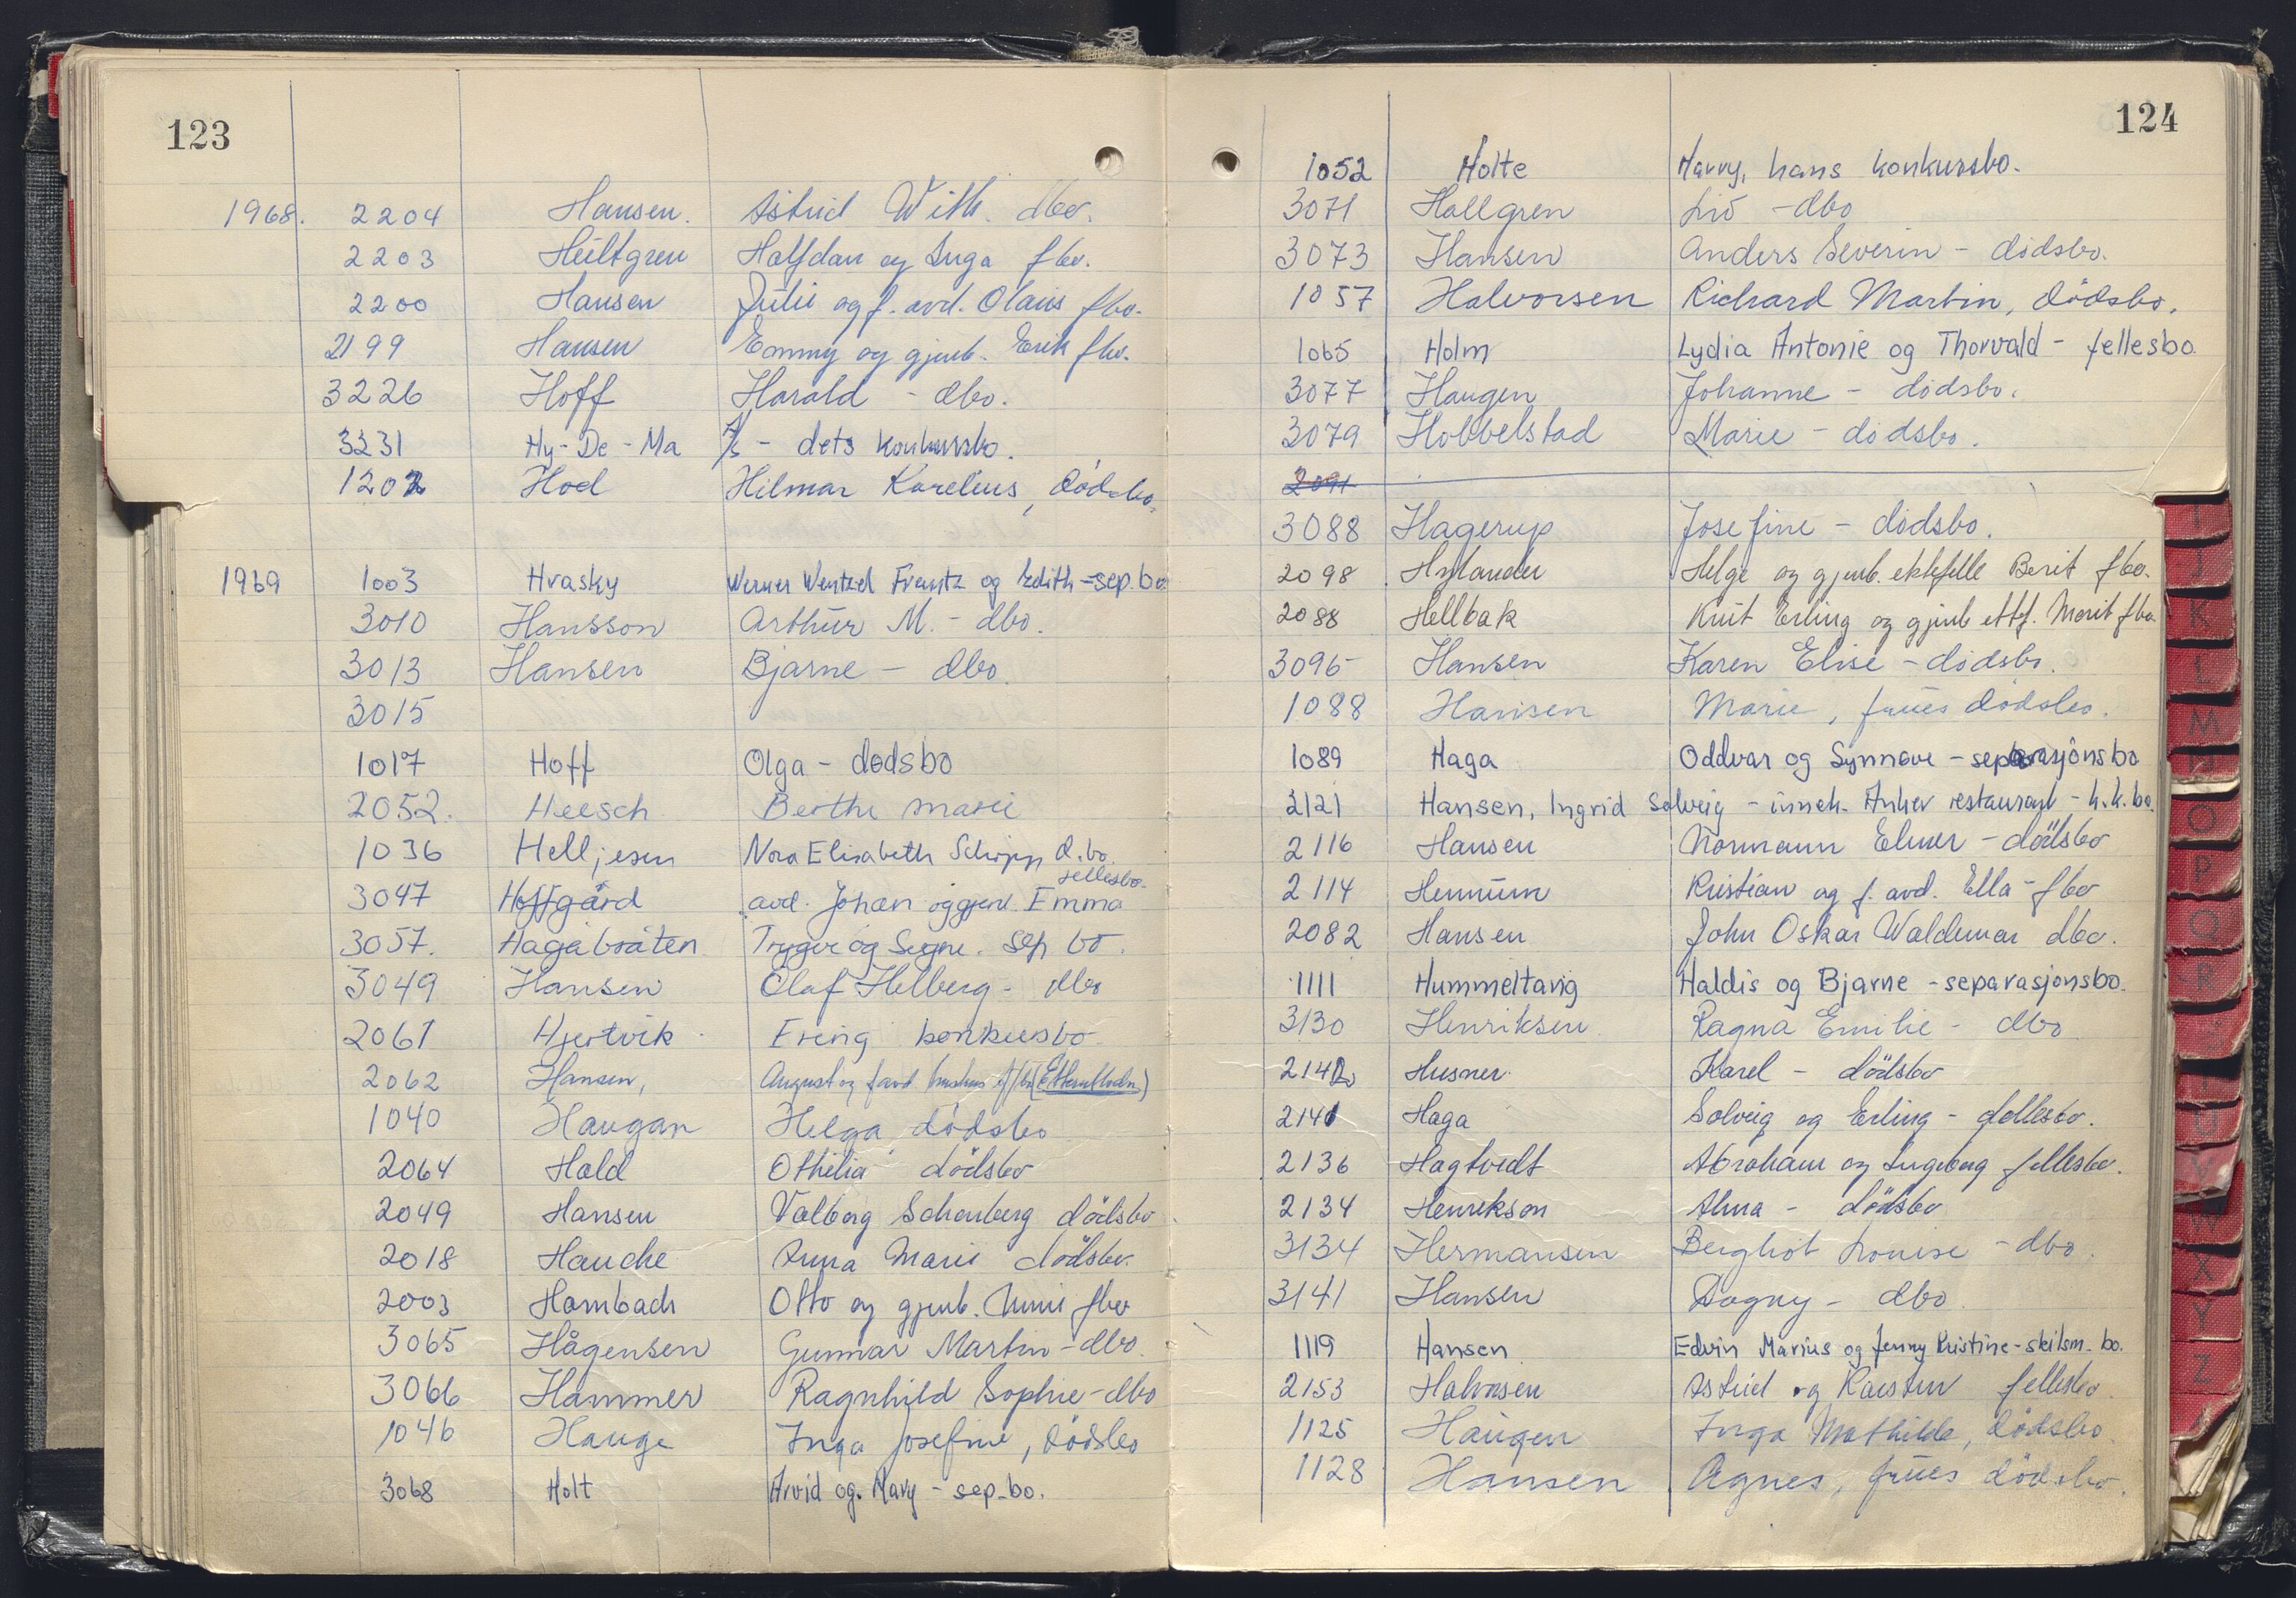 123
1968. 2204 Hansen. Astrid With. dbo.
2203 Hultgren Halfdan og Inga fbo.
2200 Hansen Julie og f. avd. Olaus fbo.
2199 Hansen Emmy og gjenl. Erik fbo.
3226 Hoff Harald - dbo.
3231 Hy-De-Ma A/S - dets konkursbo.
1202 Hoel Hilmar Karelius, dødsbo.
1969 1003 Hvasky Werner Wentzel Frantz og Edith - sep.bo
3010 Hansson Arthur M. - dbo.
3013 Hansen Bjarne - dbo.
3015
1017 Hoff Olga - dødsbo
2052. Heesch Berthe Marie
1036 Helljesen Nora Elisabeth d.bo.
3047 Hoffgård avd. Johan og gjenl. Emma fellesbo.
3057. Hagabråten Trygve og Signe. sep bo.
3049 Hansen Olaf Helberg - dbo
2061 Hjertvik Ering konkursbo
2062 Hansen, August og f avd
1040 Haugan Helga dødsbo
2064 Hald Othilia dødsbo
2049 Hansen Valborg Schønberg dødsbo
2018 Hauche Anna Marie dødsbo.
2003 Hambach Otto og gjenl. fbo
3065 Hågensen Gunnar Martin - dbo.
3066 Hammer Ragnhild Sophie - dbo
1046 Hauge Inga Josefine, dødsbo
3068 Holt Arvid og Mary - sep.bo.
124
1052 Holte Harry, hans konkursbo.
3071 Hallgren Liv - dbo
3073 Hansen Anders Severin - dødsbo.
1057 Halvorsen Richard Martin, dødsbo.
1065 Holm Lydia Antonie og Thorvald - fellesbo.
3077 Haugen Johanne - dødsbo.
3079 Hobbelstad Marie - dødsbo.
2091
3088 Hagerup Josefine - dødsbo.
2098 Hylander Helge og gjenl. ektefelle Berit fbo.
2088 Hellbak Knut Erling og gjenl ektf. Marit fbo.
3095 Hansen Karen Elise - dødsbo.
1088 Hansen Marie, frues dødsbo.
1089 Haga Oddvar og Synnøve - separasjonsbo
2121 Hansen, Ingrid Solveig - inneh. Anker restaurant - k.k.bo.
2116 Hansen Normann Elmer - dødsbo
2114 Hennum Kristian og f. avd. Ella - fbo
2082 Hansen John Oskar Waldemar dbo.
1111 Hummeltavig Haldis og Bjarne - separasjonsbo.
3130 Henriksen Ragna Emilie - dbo
2142 Husner Karel - dødsbo
2141 Haga Solveig og Erling - fellesbo.
2136 Hagtvedt Abraham og Ingeborg fellesbo.
2134 Henrikson Alma - dødsbo
3134 Hermansen Bergliot Louise - dbo.
3141 Hansen Dagny - dbo
1119 Hansen Edvin Marius og Jenny Kristine - skilsm. bo.
2153 Halvorsen Astrid og Karsten fellesbo.
1125 Haugen Inga Mathilde, dødsbo.
1128 Hansen Agnes, frues dødsbo.
I
J
K
L
M
N
O
P
Q
R
T
U
V
W
X
Y
Z